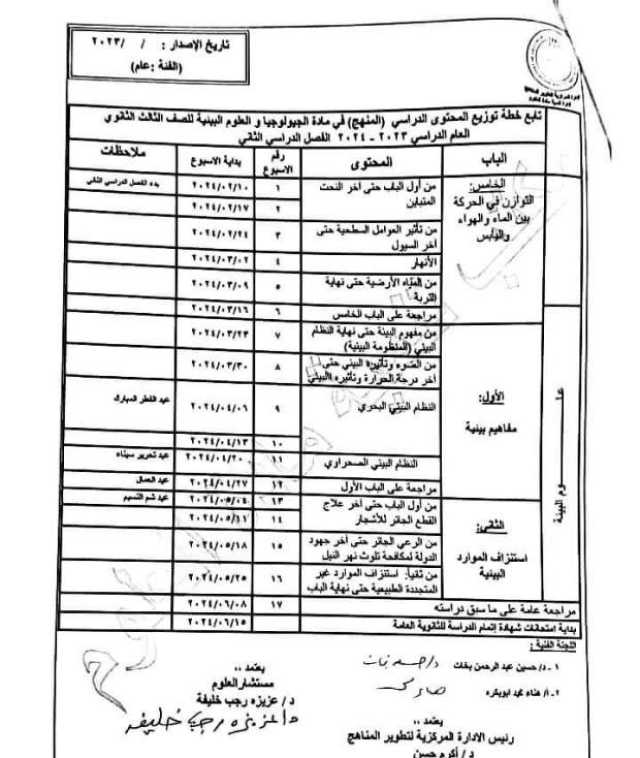 تاريخ الإصدار : / /٢٠٢٣
(الفئة :عام)
تابع خطة توزيع المحتوى الدراسي (المنهج) في مادة الجيولوجيا و العلوم البيئية للصف الثالث الثانوي
العام الدراسي ٢٠٢٣ - ٢٠٢٤ الفصل الدراسي الثاني
الباب المحتوى رقم الاسبوع بداية الاسبوع ملاحظات
الخامس:
التوازن في الحركة
بين الماء والهواء
واليابس
من أول الباب حتى آخر النحت
المتباين
١ ٢٠٢٤/٠٢/١٠ بدء الفصل الدراسي الثاني
٢ ٢٠٢٤/٠٢/١٧
من تأثير العوامل السطحية حتى
آخر السيول
٣ ٢٠٢٤/٠٢/٢٤
الأنهار ٤ ٢٠٢٤/٠٣/٠٢
من المياه الأرضية حتى نهاية
التربة
٥ ٢٠٢٤/٠٣/٠٩
مراجعة على الباب الخامس ٦ ٢٠٢٤/٠٣/١٦
علـــوم البيئة
الأول:
مفاهيم بيئية
من مفهوم البيئة حتى نهاية النظام
البيئي (المنظومة البيئية)
٧ ٢٠٢٤/٠٣/٢٣
من الضوء وتأثيره البيئي حتى
آخر درجة الحرارة وتأثيره البيئي
٨ ٢٠٢٤/٠٣/٣٠
النظام البيئي البحري ٩ ٢٠٢٤/٠٤/٠٦ عيد الفطر المبارك
١٠ ٢٠٢٤/٠٤/١٣
النظام البيئي الصحراوي ١١ ٢٠٢٤/٠٤/٢٠ عيد تحرير سيناء
مراجعة على الباب الأول ١٢ ٢٠٢٤/٠٤/٢٧ عيد العمال
الثاني:
استنزاف الموارد
البيئية
من أول الباب حتى آخر علاج
القطع الجائر للأشجار
١٣ ٢٠٢٤/٠٥/٠٤ عيد شم النسيم
١٤ ٢٠٢٤/٠٥/١١
من الرعي الجائر حتى آخر جهود
الدولة لمكافحة تلوث نهر النيل
١٥ ٢٠٢٤/٠٥/١٨
من ثانياً: استنزاف الموارد غير
المتجددة الطبيعية حتى نهاية الباب
١٦ ٢٠٢٤/٠٥/٢٥
مراجعة عامة على ما سبق دراسته ١٧ ٢٠٢٤/٠٦/٠٨
بداية امتحانات شهادة إتمام الدراسة للثانوية العامة ٢٠٢٤/٠٦/١٥
اللجنة الفنية :
١ - د/ حسين عبد الرحمن بخات
٢ - أ/ هناء محمد ابوبكره
يعتمد ،،
مستشار العلوم
د / عزيزه رجب خليفة
د/عزيزه رجب خليفه
يعتمد ،،
رئيس الادارة المركزية لتطوير المناهج
د / أكرم حسن